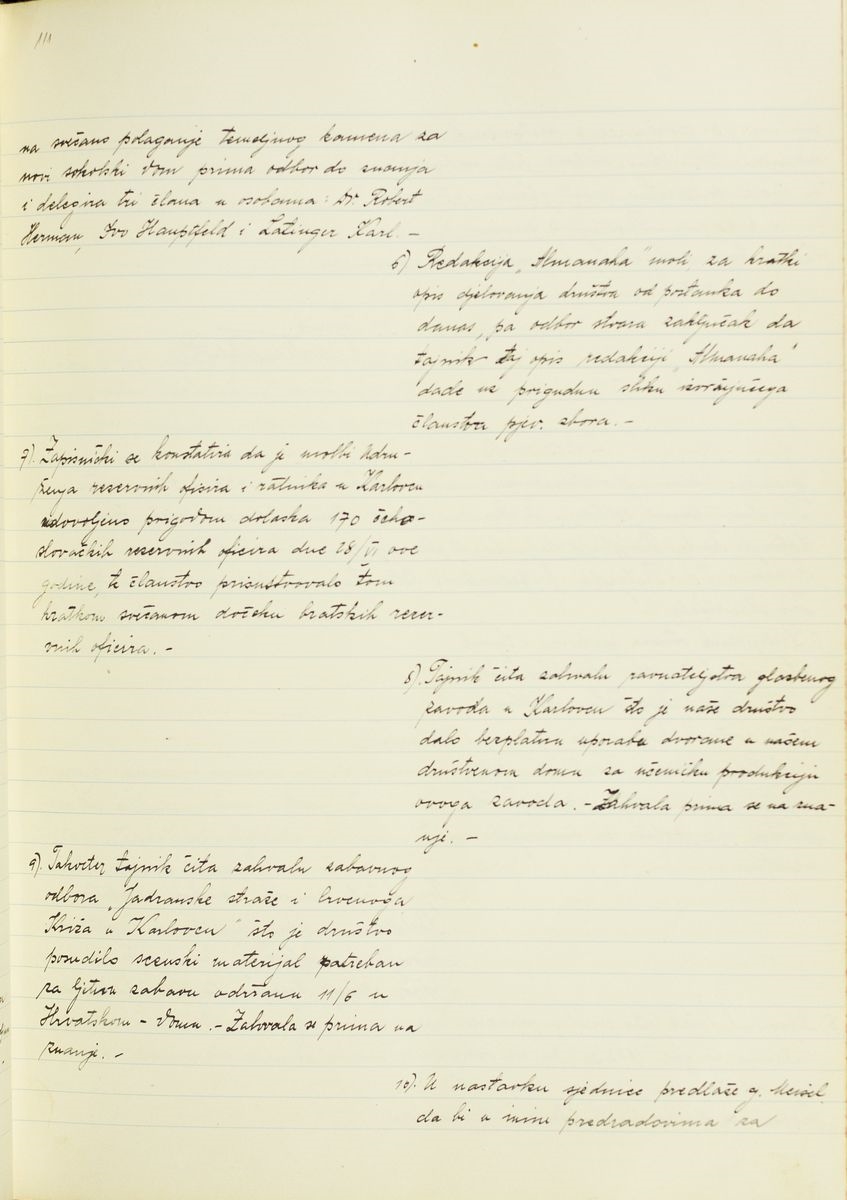 111
na svečano polaganje temeljnog kamena za
novi sokolski dom prima odbor do znanja
i delegira tri člana u osobama: Dr. Robert
Herman, Ivo Hauptfeld i Latinger Karl. -
6) Redakcija „Almanaha" moli za kratki
opis djelovanja društva od postanka do
danas, pa odbor stvara zaključak da
tajnik taj opis redakciji „Almanaha"
dade uz prigodnu sliku izvršujućega
članstva pjev. zbora. -
7). Zapisnički se konstatira da je molbi Udru-
ženja reservnih oficira i ratnika u Karlovcu
udovoljeno prigodom dolaska 170 čeho-
slovačkih reservnih oficira dne 28/VI ove
godine, te članstvo prisustvovalo tom
kratkom svečanom dočeku bratskih rezer-
vnih oficira. -
8). Tajnik čita zahvalu ravnateljstva glazbenog
zavoda u Karlovcu što je naše društvo
dalo bezplatnu uporabu dvorane u našem
društvenom domu za učeničku produkciju
ovoga zavoda. - Zahvala prima se na zna-
nje. -
9). Također tajnik čita zahvalu zabavnog
odbora „Jadranske straže i Crvenoga
Križa u Karlovcu" što je društvo
posudilo scenski materijal potreban
za ljetnu zabavu održanu 11/6 u
Hrvatskom - domu. - Zahvala se prima na
znanje. -
10). U nastavku sjednice predlaže g. Meisel
da bi u ime predradovima za